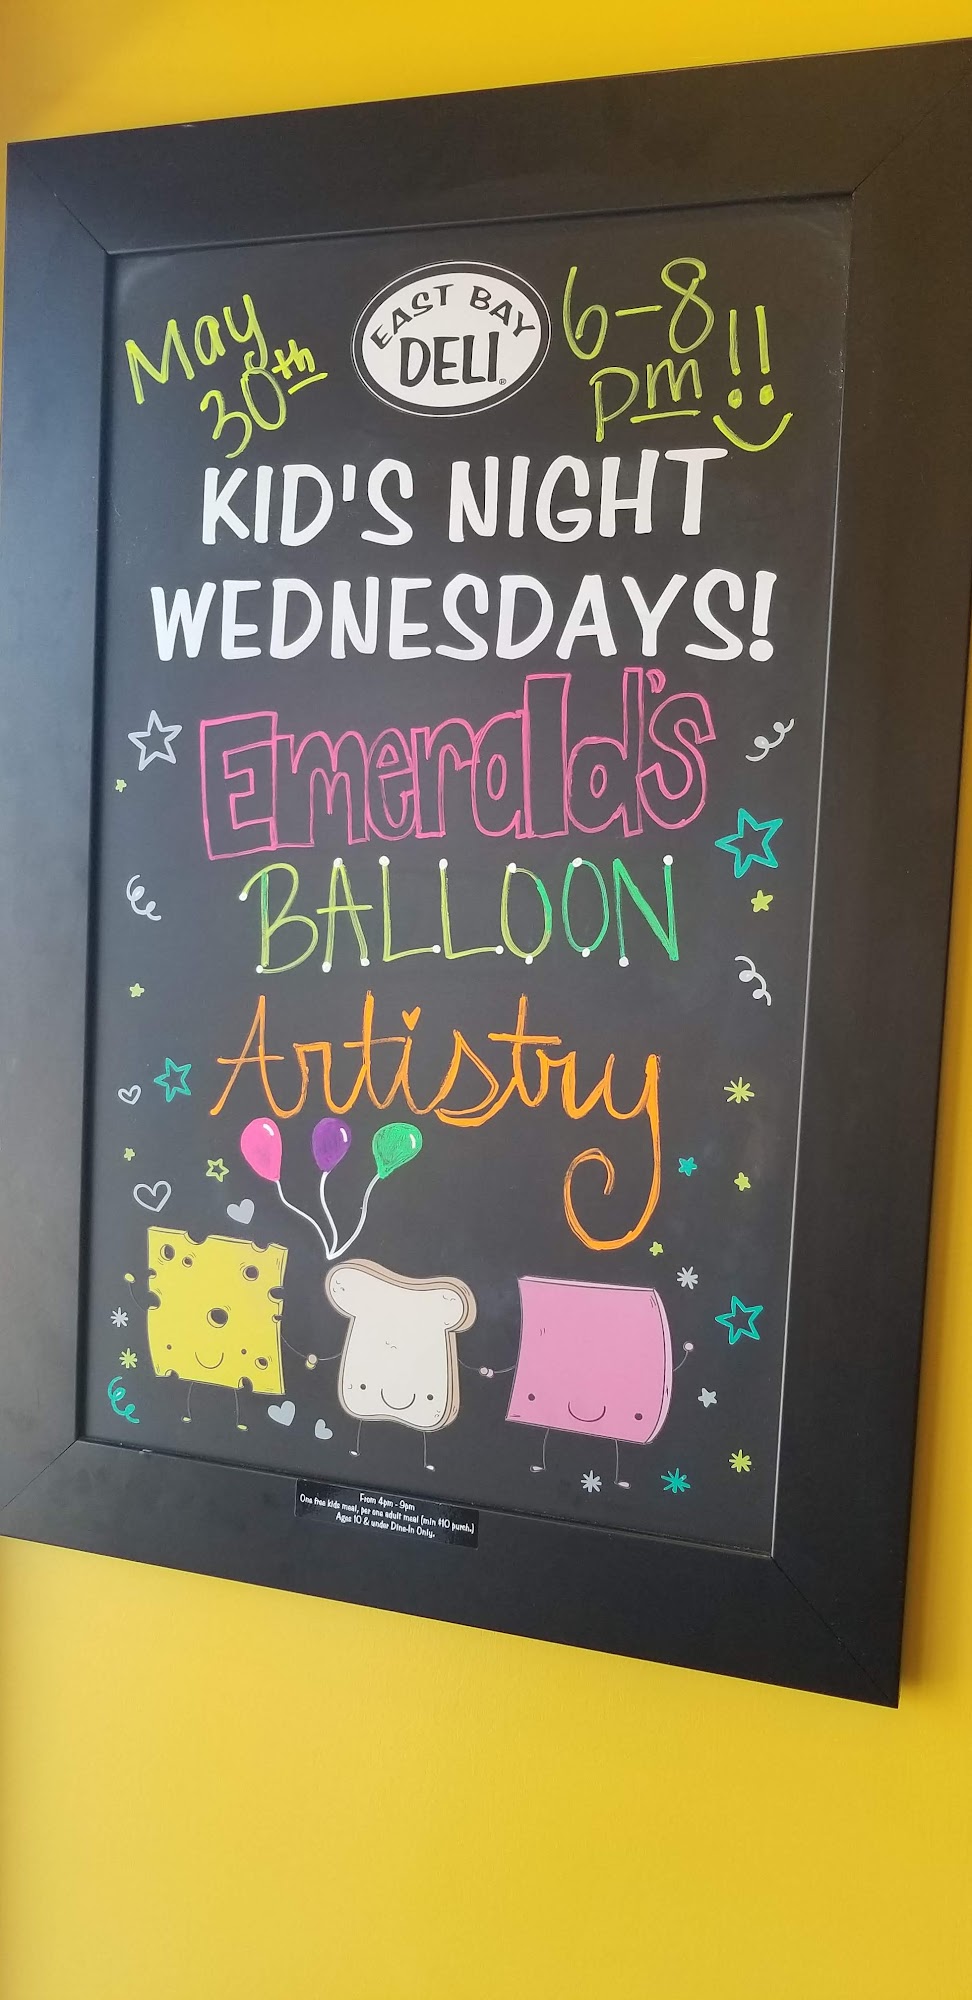 May
30th
EAST BAY
DELI®
6-8
pm!!
KID'S NIGHT
WEDNESDAYS!
Emerald's
BALLOON
Artistry
From 4pm - 9pm
One free kids meal, per one adult meal (min $10 purch.)
Ages 10 & under Dine-In Only.